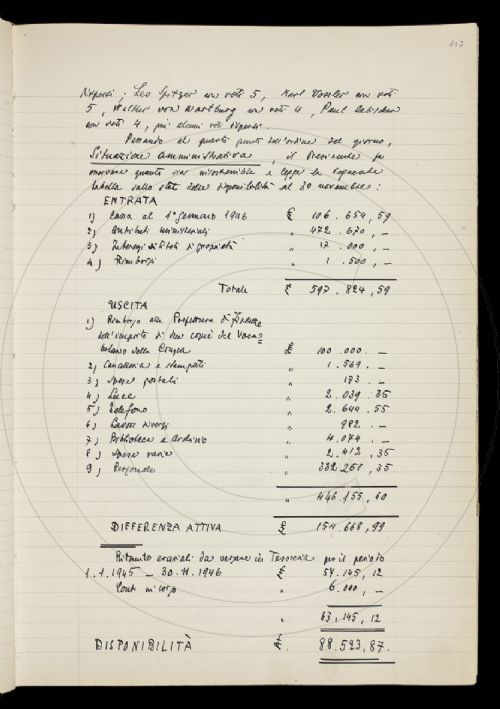 107
dispersi; Leo Spitzer con voti 5, Karl Vossler con voti
5, Walther von Wartburg con voti 4, Paul
con voti 4, più alcuni voti dispersi.
Passando al quarto punto dell'ordine del giorno,
Situazione amministrativa, il Presidente fa
quanto sia e legge la seguente
tabella sullo stato delle disponibilità al 30 novembre:
ENTRATA
1) Cassa al 1° gennaio 1946 £ 106.654,59
2) Contributi ministeriali " 472.670,—
3) Interessi di titoli di proprietà " 17.000,—
4) Rimborsi " 1.500,—
Totale £ 597.824,59
USCITA
1) Rimborso alla Prefettura di Firenze
dell'importo di due copie del Voca=
bolario della Crusca £ 100.000.—
2) Cancelleria e stampati " 1.569.—
3) Spese postali " 173.—
4) Luce " 2.039.35
5) Telefono " 2.644.55
6) Lavori diversi " 982.—
7) Biblioteca e Archivio " 4.074.—
8) Spese varie " 2.412,35
9) Personale " 332261,35
" 446.155,60
DIFFERENZA ATTIVA £ 151.668,99
Ritenute erariali da versare in Tesoreria per il periodo
1.1.1945 — 30.11.1946 £ 57.145,12
Conti in corso " 6.000,—
" 63,145,12
DISPONIBILITÀ £. 88.523,87.